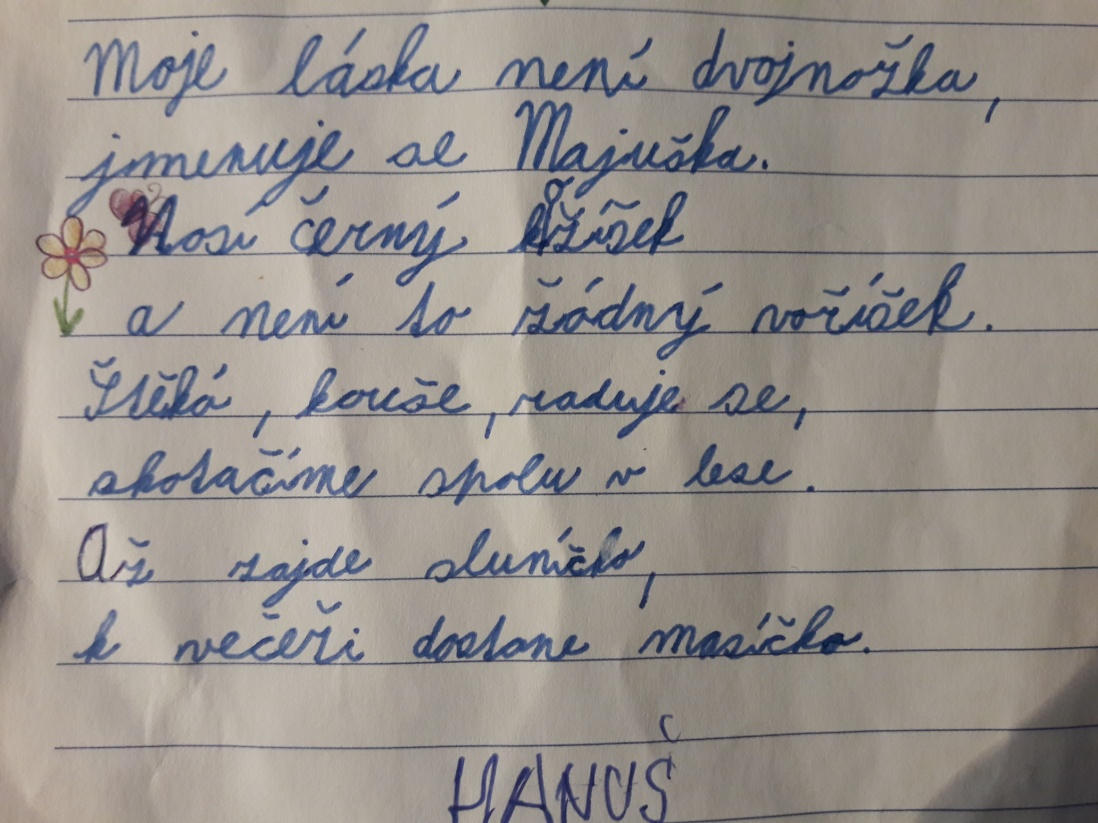 Moje láska není dvojnožka,
jmenuje se Majuška.
Nosí černý kožíšek
a není to žádný voříšek.
Štěká, kouše, raduje se,
skotačíme spolu v lese.
Až zajde sluníčko,
k večeři dostane masíčko.
HANUŠ